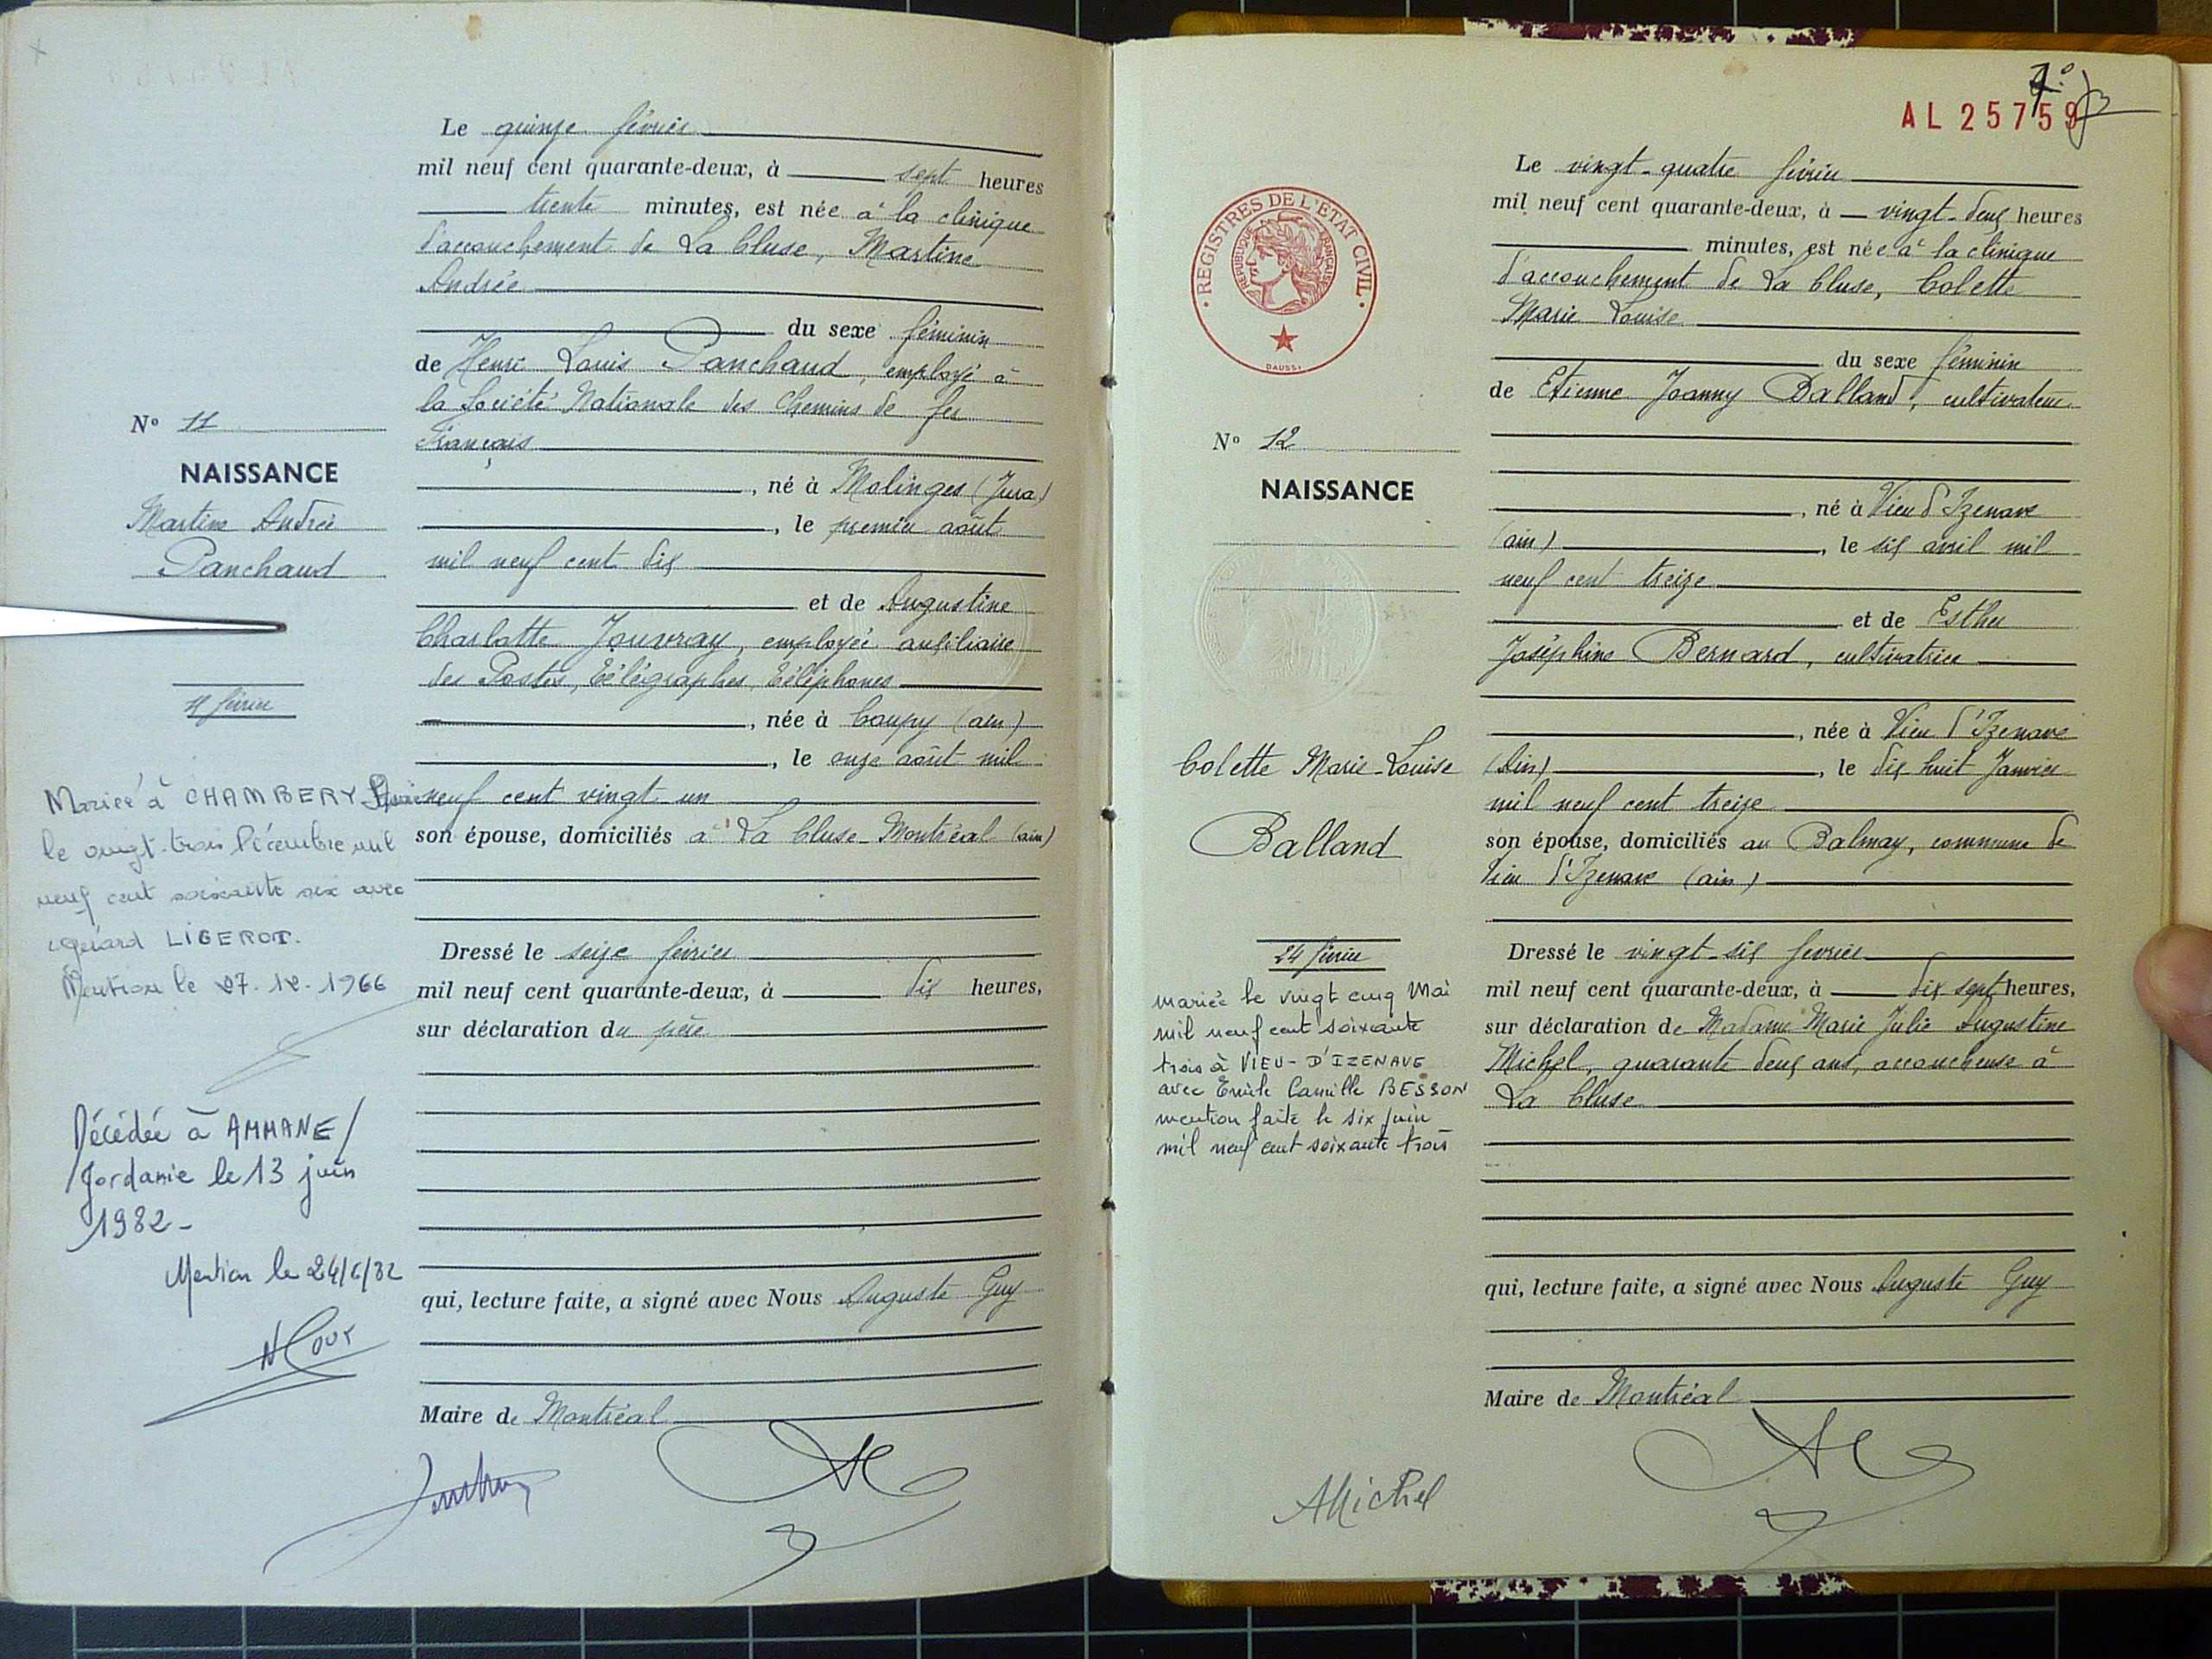 Le quinze février
mil neuf cent quarante-deux, à sept heures
trente minutes, est née à la clinique
d'accouchement de La Cluse, Martine
Andrée
du sexe féminin
de Henri Louis Panchaud, employé à
la Société Nationale des Chemins de fer
Français
, né à Molinges (Jura)
, le premier août
mil neuf cent dix
et de Augustine
Charlotte Jouvray, employée auxiliaire
des Postes, Télégraphes, Téléphones
, née à Coupy (ain)
, le onze août mil
neuf cent vingt un
son épouse, domiciliés à La Cluse-Montréal (ain)
Dressé le seize février
mil neuf cent quarante-deux, à dix heures,
sur déclaration du père
qui, lecture faite, a signé avec Nous Auguste Guy
Maire de Montréal
N° 11
NAISSANCE
Martine Andrée
Panchaud
février
Mariée à CHAMBERY
le vingt-trois Décembre mil
neuf cent soixante six avec
Gérard LIGEROT.
Mention le 27.12.1966
Décédée à AMMANE/
Jordanie le 13 juin
1982-
Mention le 24/6/82
AL 25759
REGISTRES DE L'ETAT CIVIL
REPUBLIQUE FRANÇAISE
DAUSSY
Le vingt-quatre février
mil neuf cent quarante-deux, à vingt-deux heures
minutes, est née à la clinique
d'accouchement de La Cluse, Colette
Marie Louise
du sexe féminin
de Etienne Joanny Balland, cultivateur
, né à Vieu d'Izenave
(ain) , le six avril mil
neuf cent treize
et de Esther
Joséphine Bernard, cultivatrice
, née à Vieu d'Izenave
(Ain) , le dix huit Janvier
mil neuf cent treize
son épouse, domiciliés au Balmay, commune de
Vieu d'Izenave (ain)
Dressé le vingt-six février
mil neuf cent quarante-deux, à dix sept heures,
sur déclaration de Madame Marie Julie Augustine
Michel, quarante deux ans, accoucheuse à
La Cluse
qui, lecture faite, a signé avec Nous Auguste Guy
Maire de Montréal
AMichel
N° 12
NAISSANCE
Colette Marie-Louise
Balland
24 février
mariée le vingt cinq Mai
mil neuf cent soixante
trois à VIEU-D'IZENAVE
avec Emile Camille BESSON
mention faite le six juin
mil neuf cent soixante trois